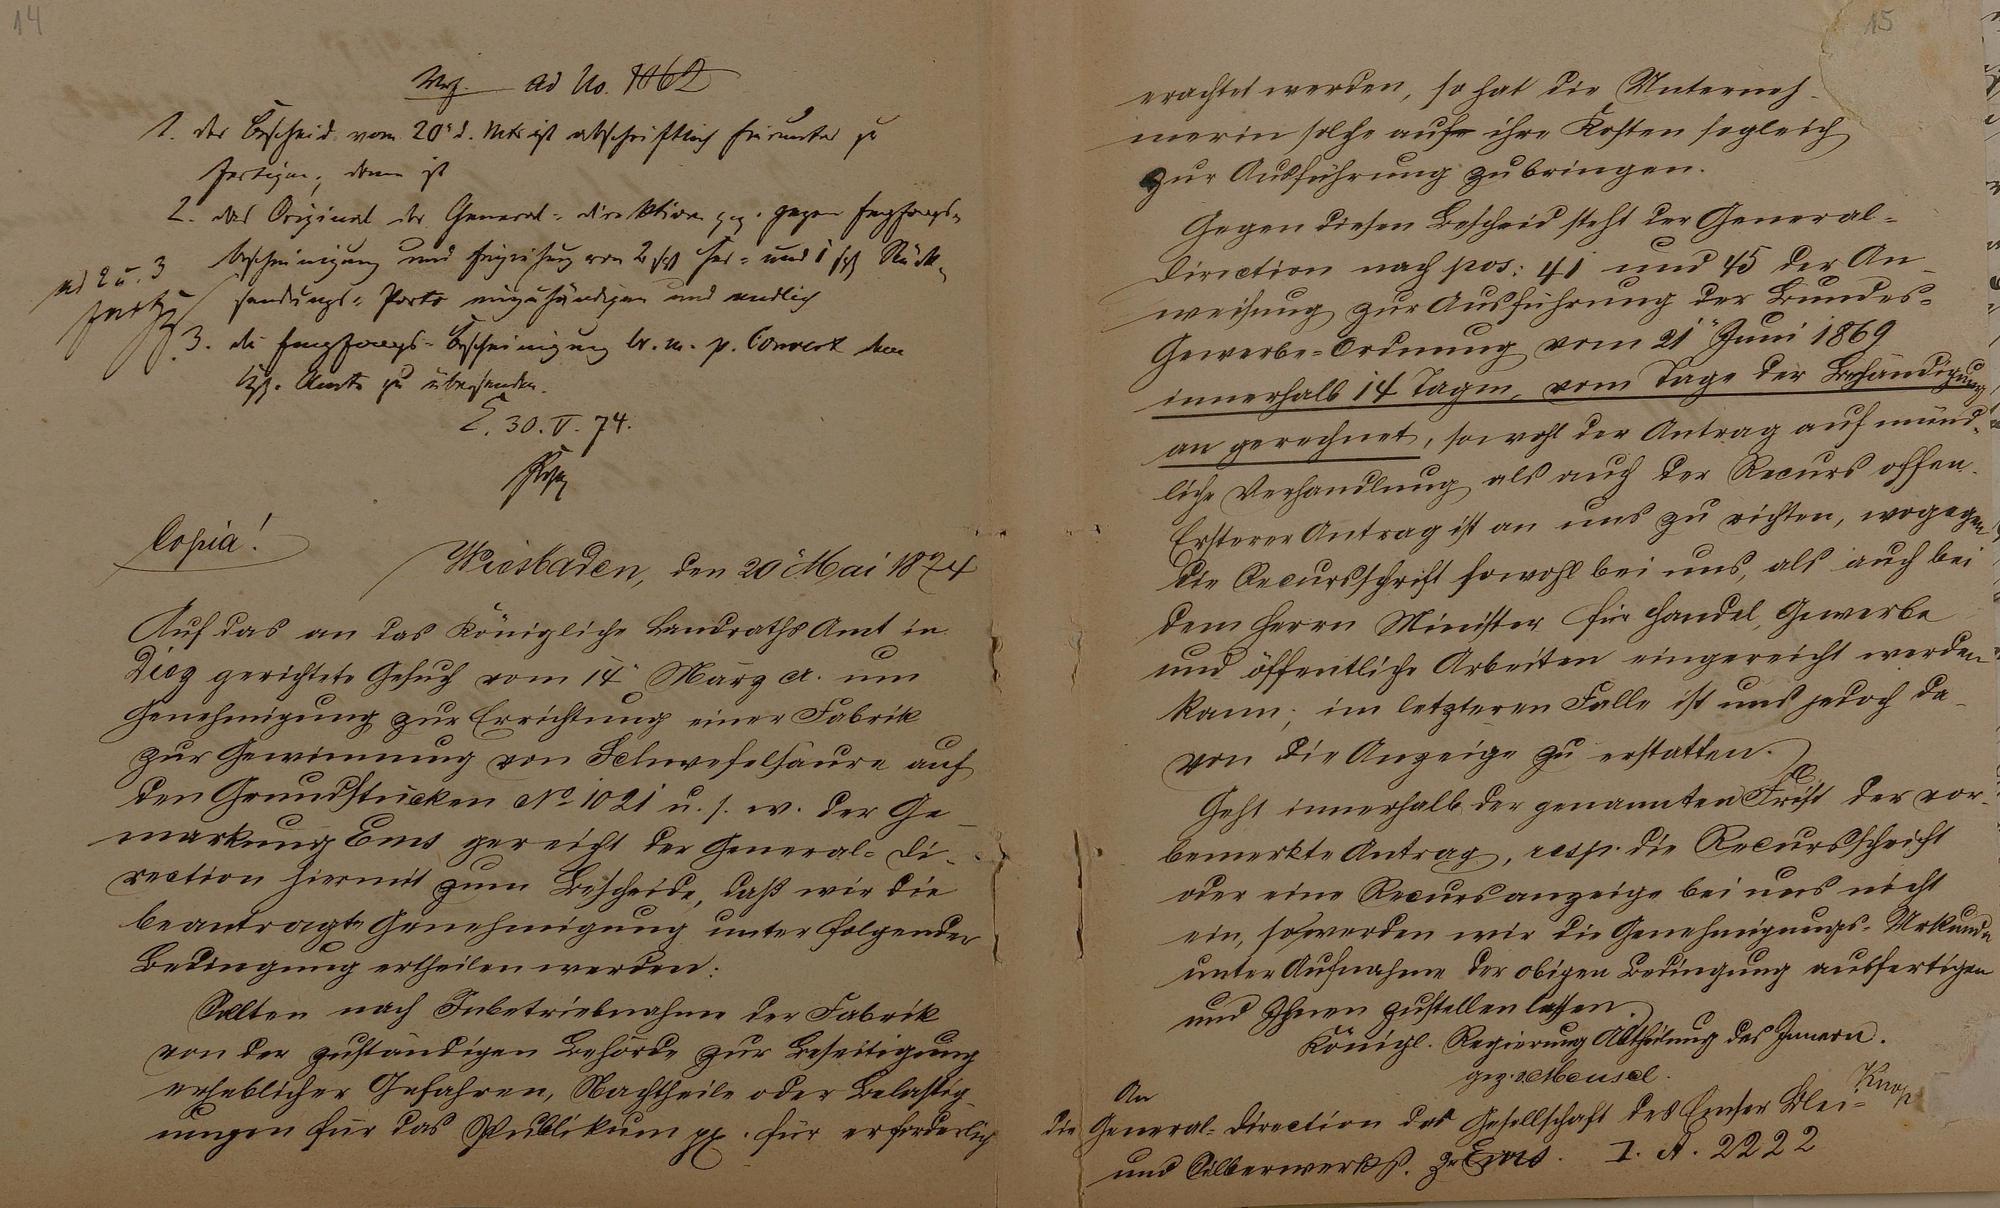 14
Vfg. ad No. 1862
1. der Bescheid vom 20t d. Mts ist abschriftlich hierunter zu
fertigen, dann ist
2. das Original der General-direktion gegen Empfangs-
bescheinigung und Einziehung von 2 sgr Her- und 1 sgr Rück-
sendungs-Porto einzuhändigen und endlich
3. die Empfangs-Bescheinigung br. m. p. Couvert dem
Kgl. Amte zu übersenden.
ad 2 u. 3
E. 30. V. 74.
Copia!
Wiesbaden, den 20t Mai 1874
Auf das an das Königliche Landraths Amt in
Diez gerichtete Gesuch vom 14t März cr. um
Genehmigung zur Errichtung einer Fabrik
zur Gewinnung von Schwefelsäure auf
den Grundstücken No 1021 u. s. w. der Ge-
markung Ems gereicht der General-Di-
rection hiermit zum Bescheide, daß wir die
beantragte Genehmigung unter folgender
Bedingung ertheilen werden:
Sollten nach Inbetriebnahme der Fabrik
von der zuständigen Behörde zur Beseitigung
erheblicher Gefahren, Nachtheile oder Belästig-
ungen für das Publikum pp. für erforderlich
15
erachtet werden, so hat die Unterneh-
merin solche auf ihre Kosten sogleich
zur Ausführung zu bringen.
Gegen diesen Bescheid steht der General-
direction nach pos: 41 und 45 der An-
weisung zur Ausführung der Bundes-
Gewerbe-Ordnung vom 21t Juni 1869
innerhalb 14 Tagen, vom Tage der Behändigung
an gerechnet, sowohl der Antrag auf münd-
liche Verhandlung als auch der Recurs offen.
Ersterer Antrag ist an uns zu richten, wogegen
die Recursschrift sowohl bei uns, als auch bei
dem Herrn Minister für Handel, Gewerbe
und öffentliche Arbeiten eingereicht werden
kann; im letzteren Falle ist uns jedoch da-
von die Anzeige zu erstatten.
Geht innerhalb der genannten Frist der vor-
bemerkte Antrag, resp. die Recursschrift
oder eine Recursanzeige bei uns nicht
ein, so werden wir die Genehmigungs-Urkunde
unter Aufnahme der obigen Bedingung ausfertigen
und Ihnen zustellen lassen.
Königl. Regierung Abtheilung des Innern.
gez. v. Meusel.
Knop
An
die General-Direction der Gesellschaft des Emser Blei-
und Silberwerks. zu Ems. I. A. 2222